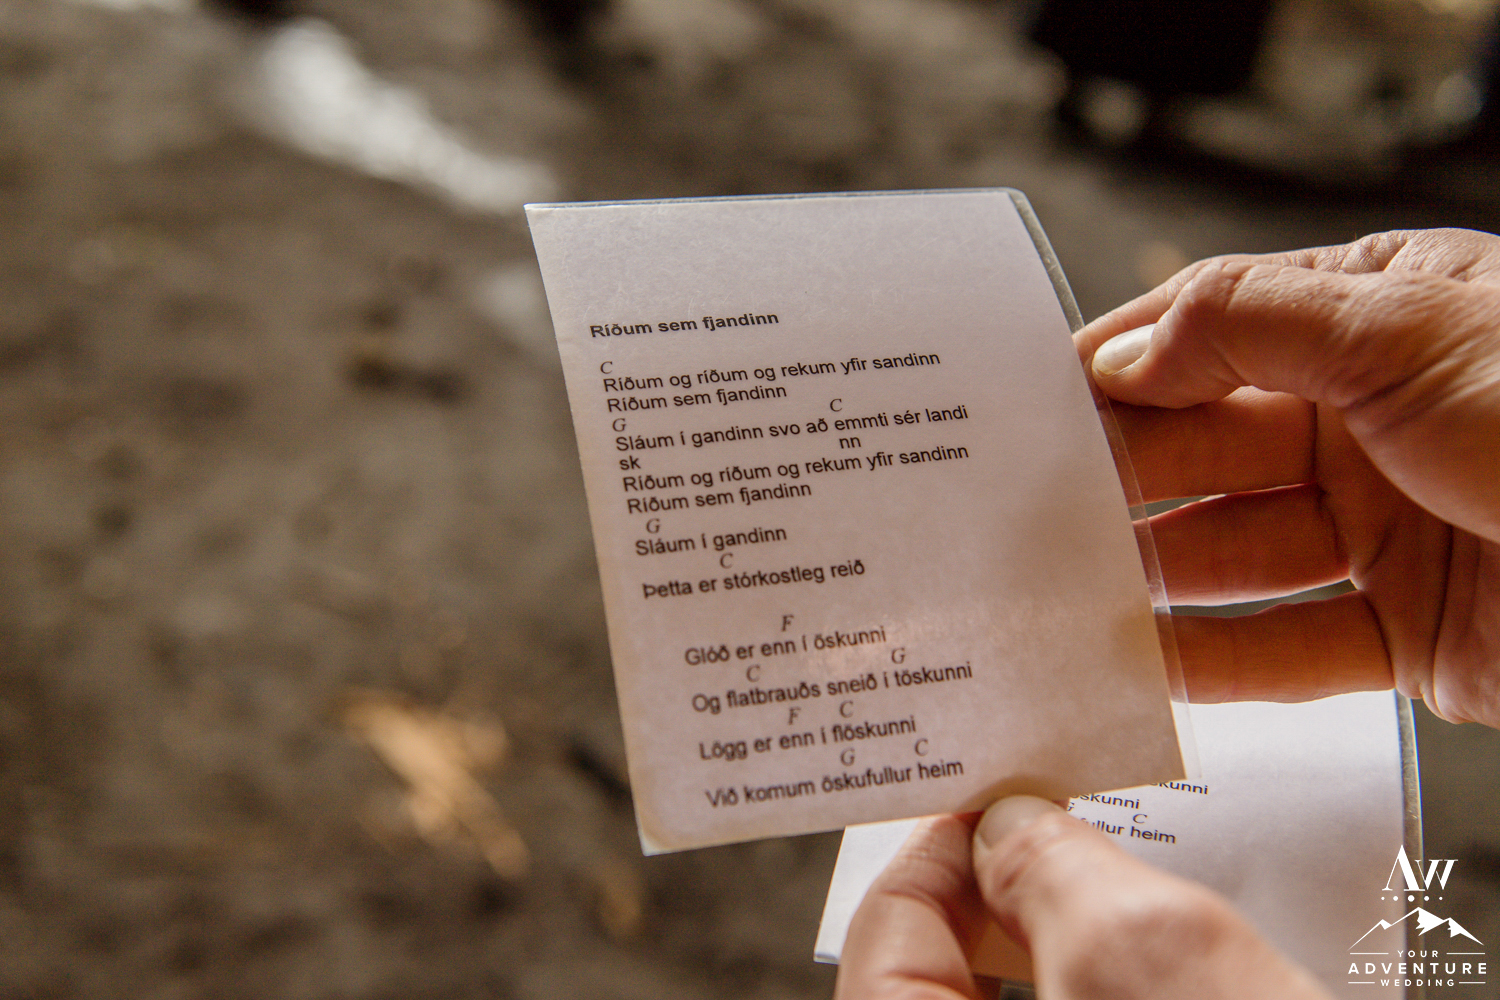 Ríðum sem fjandinn
C
Ríðum og ríðum og rekum yfir sandinn
Ríðum sem fjandinn
G C
Sláum í gandinn svo að emmti sér landi
sk nn
Ríðum og ríðum og rekum yfir sandinn
Ríðum sem fjandinn
G
Sláum í gandinn
C
Þetta er stórkostleg reið
F
Glóð er enn í öskunni
C G
Og flatbrauðs sneið í töskunni
F C
Lögg er enn í flöskunni
G C
Við komum öskufullur heim
skunni
öskunni
G C
fullur heim
AW
YOUR
ADVENTURE
WEDDING